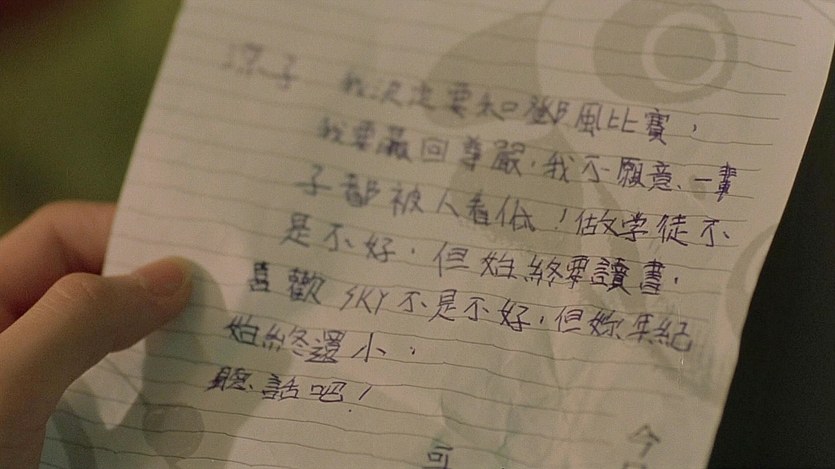 琼子 我决定要和鄧風比賽，
我要贏回尊嚴，我不願意一輩
子都被人看低！做学徒不
是不好，但始終要讀書，
喜歡SKY不是不好，但妳年紀
始終還小，
聽話吧！
今
可